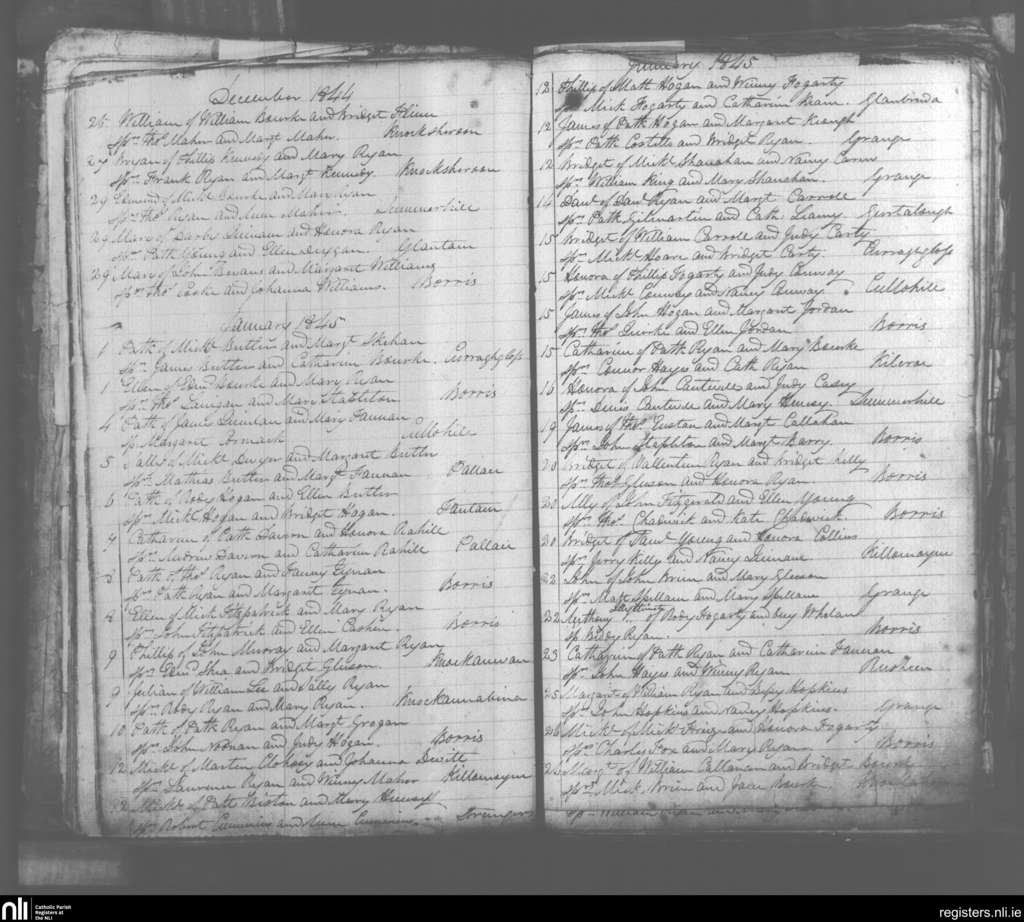 December 1844
25 William of William Bourke and Bridget
Sprs Thos Maher and Margt Maher. Knocksheroon
29 Bryan of Phillip Kennedy and Mary Ryan
Sprs Frank Ryan and Margt Kennedy Knocksheroon
29 Edmund of Mick Bourke and Mary Ryan
Sprs Thos Ryan and Maher. Summerhill
29 Mary of Darby and Honora Ryan
Sprs Path Young and Ellen Glantain
29 Mary of John and Margaret Williams
Sprs Thos Cooke and Johanna Williams. Borris
January 1845
1 Path of Mickl Butler and Margt Skehan
Sprs James Butler and Catharin Bourke. Curraghgloss
1 Ellen of Edmd Bourke and Mary Ryan
Sprs Thos Lanigan and Mary Stapleton Borris
4 Path of James Quinlan and Mary Fannan
Sp Margaret Cormack Cullohill
5 of Mickl Dwyer and Margaret Butler
Sprs Mathias Butler and Margt Fannan Pallace
6 Path of Rody Hogan and Ellen Butler
Sprs Mickl Hogan and Bridget Hogan. Fantain
7 Catharin of Path Davern and Honora Rahill
Sprs Andrew Davern and Catharin Rahill Pallace
8 Path of Thos Ryan and Fanny
Sprs Path Ryan and Margaret Borris
8 Ellen of Mick Fitzpatrick and Mary Ryan
Sprs John Fitzpatrick and Ellen Cashen. Borris
9 Phillip of John Murray and Margaret Ryan
Sprs Edmd Shea and Bridget Gleeson. Knockanevan
9 Julian of William Lee and Sally Ryan
Sprs Rody Ryan and Mary Ryan. Knockannabina
10 Path of Path Ryan and Margt Grogan
Sprs John Noonan and Judy Hogan. Borris
12 Mickl of Martin Clohosy and Johanna Divitt
Sprs Laurence Ryan and Winny Maher Killomayne
12 Mickl of Path and Mary
Sprs Robert Cummins and Cummins. Strangers
January 1845
12 Phillip of Matt Hogan and Winny Fogarty
Sprs Mick Fogarty and Catharin Kean. Glanbrida
12 James of Path Hogan and Margaret Keough
Sprs Path Costello and Bridget Ryan. Grange
12 Bridget of Mickl Shanahan and Nancy
Sprs William King and Mary Shanahan. Grange
14 Danl of Danl Ryan and Margt Carroll
Sprs Path Gilmartin and Cath Liamy. Gurtalough
15 Bridget of William Carroll and Judy Carty
Sprs Mickl Hoare and Bridget Carty. Curraghgloss
15 Honora of Phillip Fogarty and Judy Conway
Sprs Mickl Conway and Nancy Conway. Cullohill
15 James of John Hogan and Margaret Jordan
Sprs Thos Quirke and Ellen Jordan Borris
15 Catharin of Path Ryan and Mary Bourke
Sprs Connor Hayes and Cath Ryan Kilvroe
16 Honora of John Cantwill and Judy Casey
Sprs Denis Cantwill and Mary Summerhill
19 James of Thos and Margt Callahan
Sprs John Stapleton and Margt Barry. Borris
20 Bridget of Vallentin Ryan and Bridget Kelly
Sprs Thos Gleeson and Honora Ryan. Borris
20 Ally of John Fitzgerald and Ellen Young
Sprs Thos Chadwick and Kate Chadwick. Borris
20 Bridget of Saml Young and Honora Collins
Sprs Jerry Kelly and Nancy Killomayne
22 John of John Brien and Mary Gleeson
Sprs Matt Spillane and Mary Spillane Grange
22 Anthony of Rody Fogarty and Whelan
Sp Biddy Ryan. Borris
23 Catharin of Path Ryan and Catharin Fannan
Sprs John Hayes and Winny Ryan Rusheen
25 Margart of William Ryan and Hopkins
Sprs John Hopkins and Nancy Hopkins. Grange
26 Mickl of Mickl and Honora Fogarty
Sprs Charly Fox and Mary Ryan Borris
Margt of William Callanan and Bridget Bourke
Sprs Mick Brien and Bourke.
Sprs William
nli Catholic Parish
Registers at
the NLI
registers.nli.ie